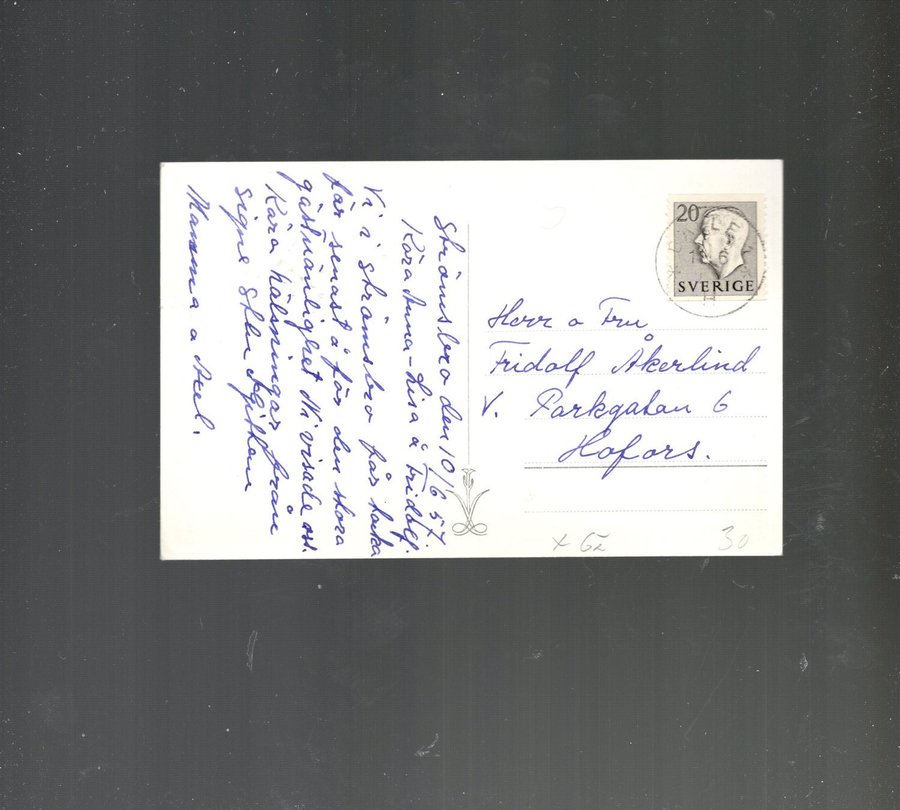 Strömsbro den 10/6 57.
Kära Anna-Lisa å Fridolf.
Vi i Strömsbro får tacka
för senast å för den stora
gästvänlighet Ni visade oss.
Kära hälsningar från
Signe Sten
Mamma o Axel.
20
SVERIGE
Herr o Fru
Fridolf Åkerlind
V. Parkgatan 6
Hofors.
30